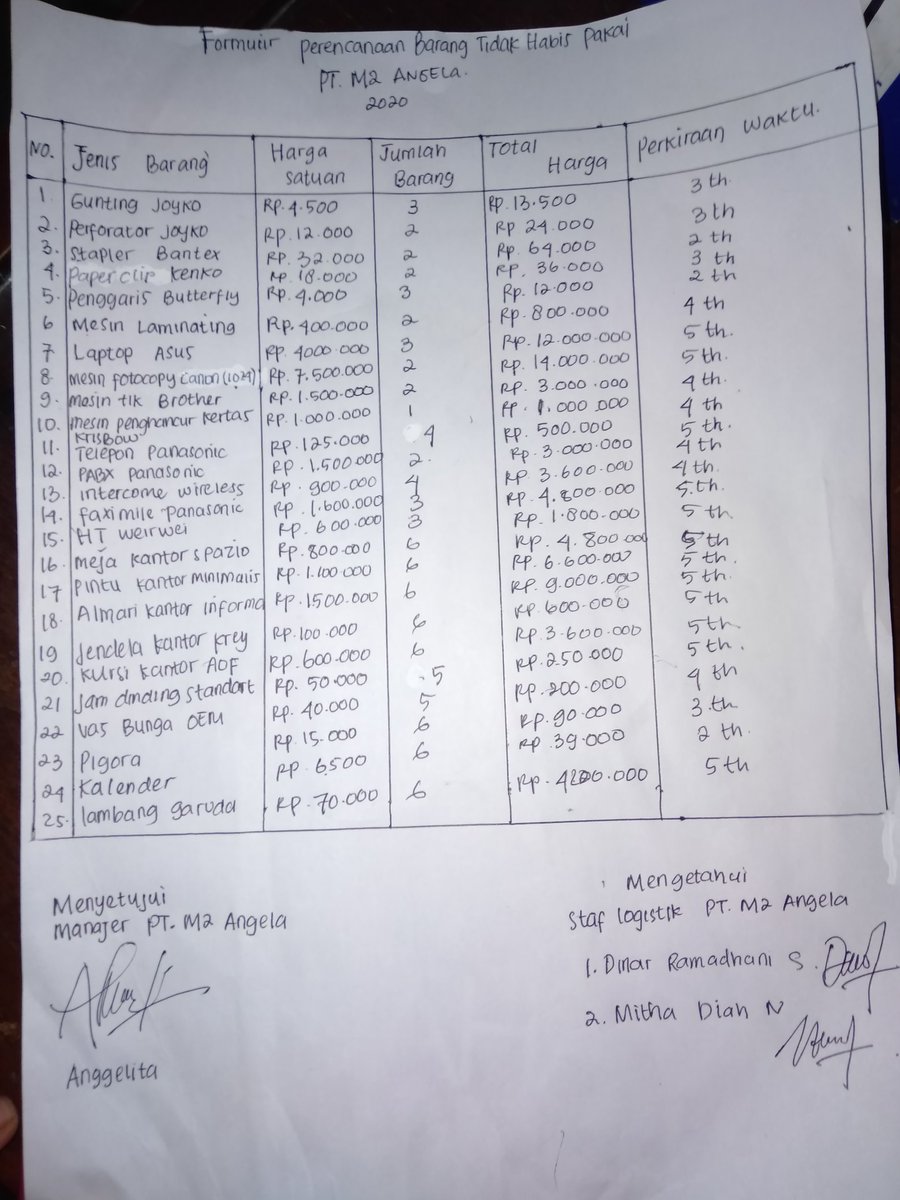 Formulir Perencanaan Barang Tidak Habis Pakai
PT. M2 ANGELA.
2020
NO. Jenis Barang Harga satuan Jumlah Barang Total Harga Perkiraan Waktu.
1. Gunting Joyko Rp. 4.500 3 Rp. 13.500 3 th
2. Perforator Joyko Rp. 12.000 2 Rp 24.000 3 th
3. Stapler Bantex Rp. 32.000 2 Rp. 64.000 2 th
4. Paper clip Kenko Rp. 18.000 2 Rp. 36.000 3 th
5. Penggaris Butterfly Rp. 4.000 3 Rp. 12.000 2 th
6 Mesin Laminating Rp. 400.000 2 Rp. 800.000 4 th
7 Laptop Asus Rp. 4000.000 3 Rp. 12.000.000 5 th.
8. mesin fotocopy Canon (1024) Rp. 7.500.000 2 Rp. 14.000.000 5 th.
9. mesin tik Brother Rp. 1.500.000 2 Rp. 3.000.000 4 th.
10. mesin penghancur kertas Krisbow Rp. 1.000.000 1 Rp. 1.000.000 4 th
11. Telepon panasonic Rp. 125.000 4 Rp. 500.000 5 th.
12. PABX panasonic Rp. 1.500.000 2. Rp. 3.000.000 4 th
13. intercome wireless Rp. 900.000 4 Rp. 3.600.000 4 th.
14. faximile panasonic Rp. 1.600.000 3 Rp. 4.800.000 5.th.
15. HT weirwei Rp. 600.000 3 Rp. 1.800.000 5 th
16. meja kantor spazio Rp. 800.000 6 Rp. 4.800.000 5 th
17 Pintu kantor minimalis Rp. 1.100.000 6 Rp. 6.600.000 5 th.
18. Almari kantor informa Rp. 1500.000 6 Rp. 9.000.000 5 th.
19 Jendela kantor krey Rp. 100.000 6 Rp. 600.000 5 th
20. kursi kantor AOF Rp. 600.000 6 Rp. 3.600.000 5 th.
21 Jam dinding standart Rp. 50.000 5 Rp. 250.000 5 th.
22 Vas Bunga OEM Rp. 40.000 5 Rp. 200.000 4 th
23 Pigora Rp. 15.000 6 Rp. 90.000 3.th
24 Kalender Rp. 6500 6 Rp 39.000 2 th.
25. lambang garuda Rp. 70.000 6 Rp. 4200.000 5 th
Menyetujui
Manajer PT. M2 Angela
Anggelita
Mengetahui
Staf logistik PT. M2 Angela
1. Dinar Ramadhani S.
2. Mitha Diah N